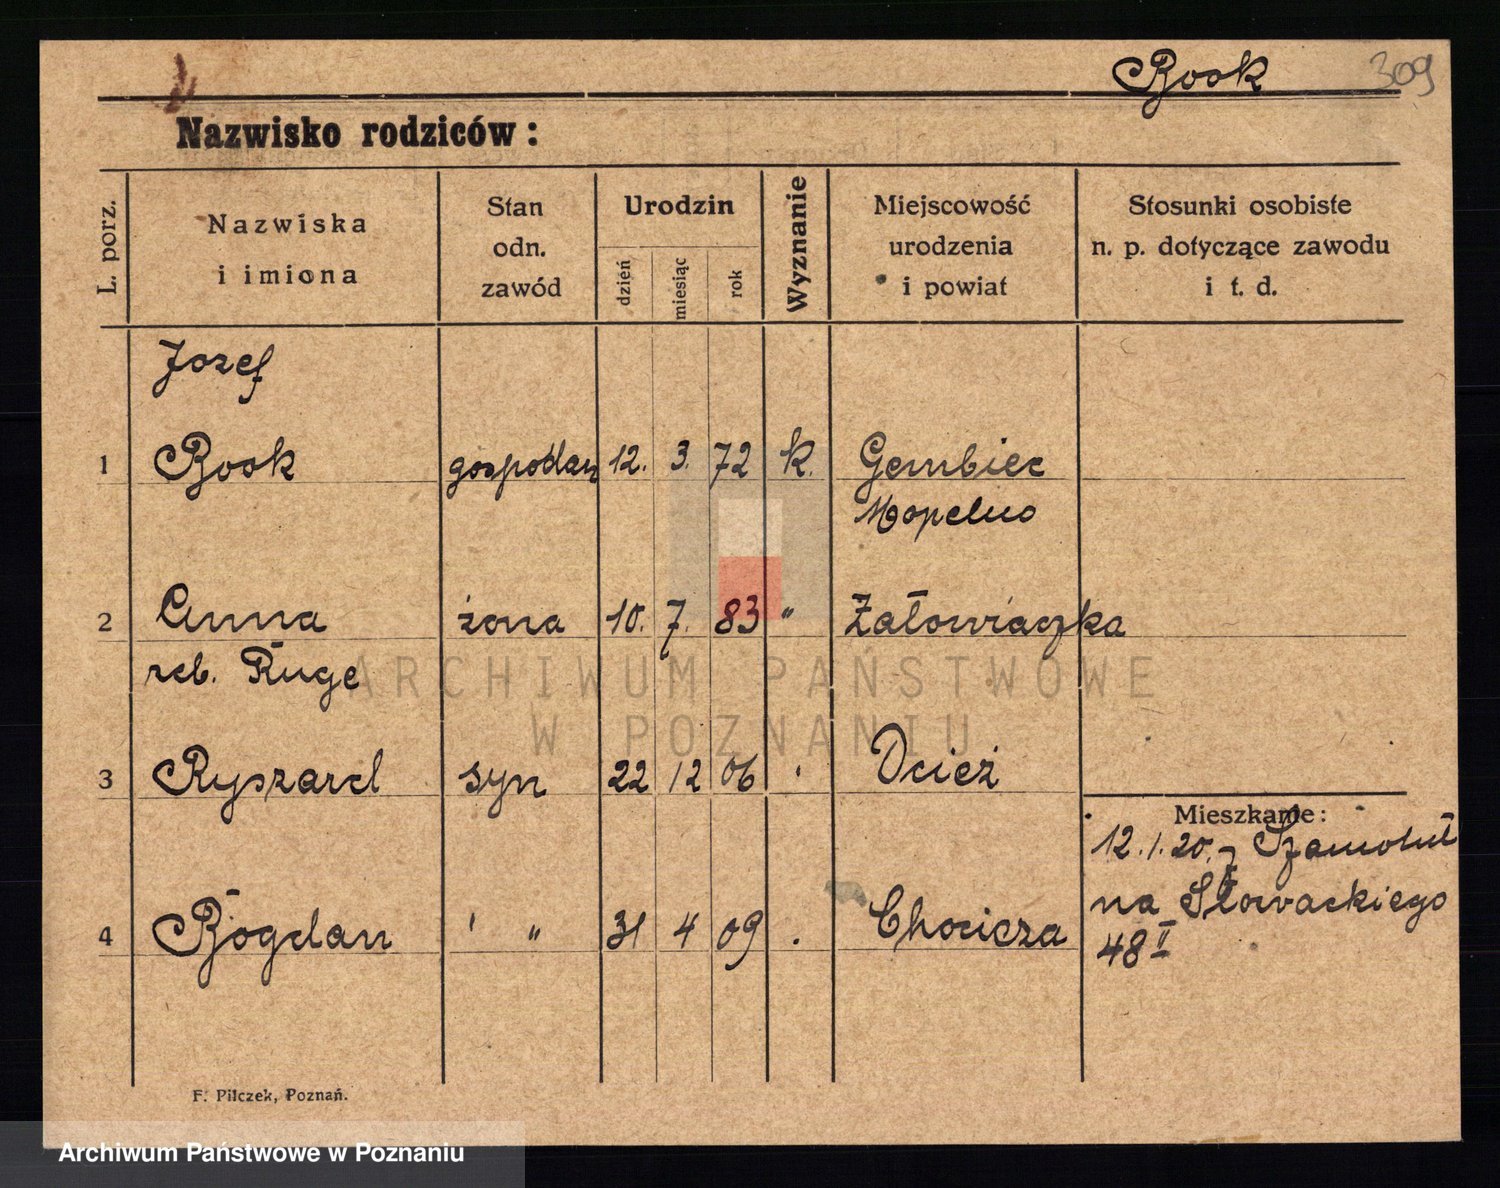 Bosk 309
Nazwisko rodziców:
L. porz.
Nazwiska
i imiona
Stan
odn.
zawód
Urodzin
dzień
miesiąc
rok
Wyznanie
Miejscowość
urodzenia
i powiat
Stosunki osobiste
n. p. dotyczące zawodu
i t. d.
Jozef
1 Bosk gospodarz 12. 3. 72 k. Gembiec
Mogelno
2 Anna żona 10. 7. 83 " Załowiaczka
reb. Ruge
3 Ryszard syn 22 12 06 ' Ocież
Mieszkanie:
12.1.20. z Szamotuł
na Słowackiego
4 Bogdan ' " 31 4 09 . Chocicza
48 II
F. Pilczek, Poznań.
ARCHIWUM PAŃSTWOWE
W POZNANIU
Archiwum Państwowe w Poznaniu